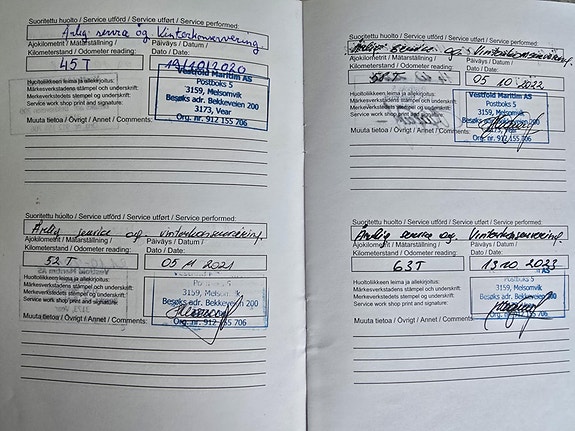 Suoritettu huolto / Service utförd / Service utført / Service performed:
Årlig service og Vinterkonservering.
Ajokilometrit / Mätarställning / Päiväys / Datum /
Kilometerstand / Odometer reading: Dato / Date:
45T 19/10/2020
Huoltoliikkeen leima ja allekirjoitus:
Märkesverkstadens stämpel och underskrift:
Merkeverkstedets stempel og underskrift:
Service work shop print and signature:
Vestfold Maritim AS
Postboks 5
3159, Melsomvik
Besøks adr. Bekkeveien 200
3173, Vear
Org. nr. 912 155 706
Muuta tietoa / Övrigt / Annet / Comments:
Suoritettu huolto / Service utförd / Service utført / Service performed:
Årlig service og vinterkonservering.
Ajokilometrit / Mätarställning / Päiväys / Datum /
Kilometerstand / Odometer reading: Dato / Date:
52T 05 11 2021
Huoltoliikkeen leima ja allekirjoitus:
Märkesverkstadens stämpel och underskrift:
Merkeverkstedets stempel og underskrift:
Service work shop print and signature:
Postboks 5
3159, Melsomvik
Besøks adr. Bekkeveien 200
Org. nr. 912 155 706
Muuta tietoa / Övrigt / Annet / Comments:
Suoritettu huolto / Service utförd / Service utført / Service performed:
Årlig service og Vinterkonservering.
Ajokilometrit / Mätarställning / Päiväys / Datum /
Kilometerstand / Odometer reading: Dato / Date:
05 10 2022
Huoltoliikkeen leima ja allekirjoitus:
Märkesverkstadens stämpel och underskrift:
Merkeverkstedets stempel og underskrift:
Service work shop print and signature:
Vestfold Maritim AS
Postboks 5
3159, Melsomvik
Besøks adr. Bekkeveien 200
3173, Vear
Org. nr. 912 155 706
Muuta tietoa / Övrigt / Annet / Comments:
Suoritettu huolto / Service utförd / Service utført / Service performed:
Årlig service og Vinterkonservering.
Ajokilometrit / Mätarställning / Päiväys / Datum /
Kilometerstand / Odometer reading: Dato / Date:
63T 13 10 2023
Huoltoliikkeen leima ja allekirjoitus:
Märkesverkstadens stämpel och underskrift:
Merkeverkstedets stempel og underskrift:
Service work shop print and signature:
AS
Postboks 5
3159, Melsomvik
Besøks adr. Bekkeveien 200
Org. nr. 912 155 706
Muuta tietoa / Övrigt / Annet / Comments: